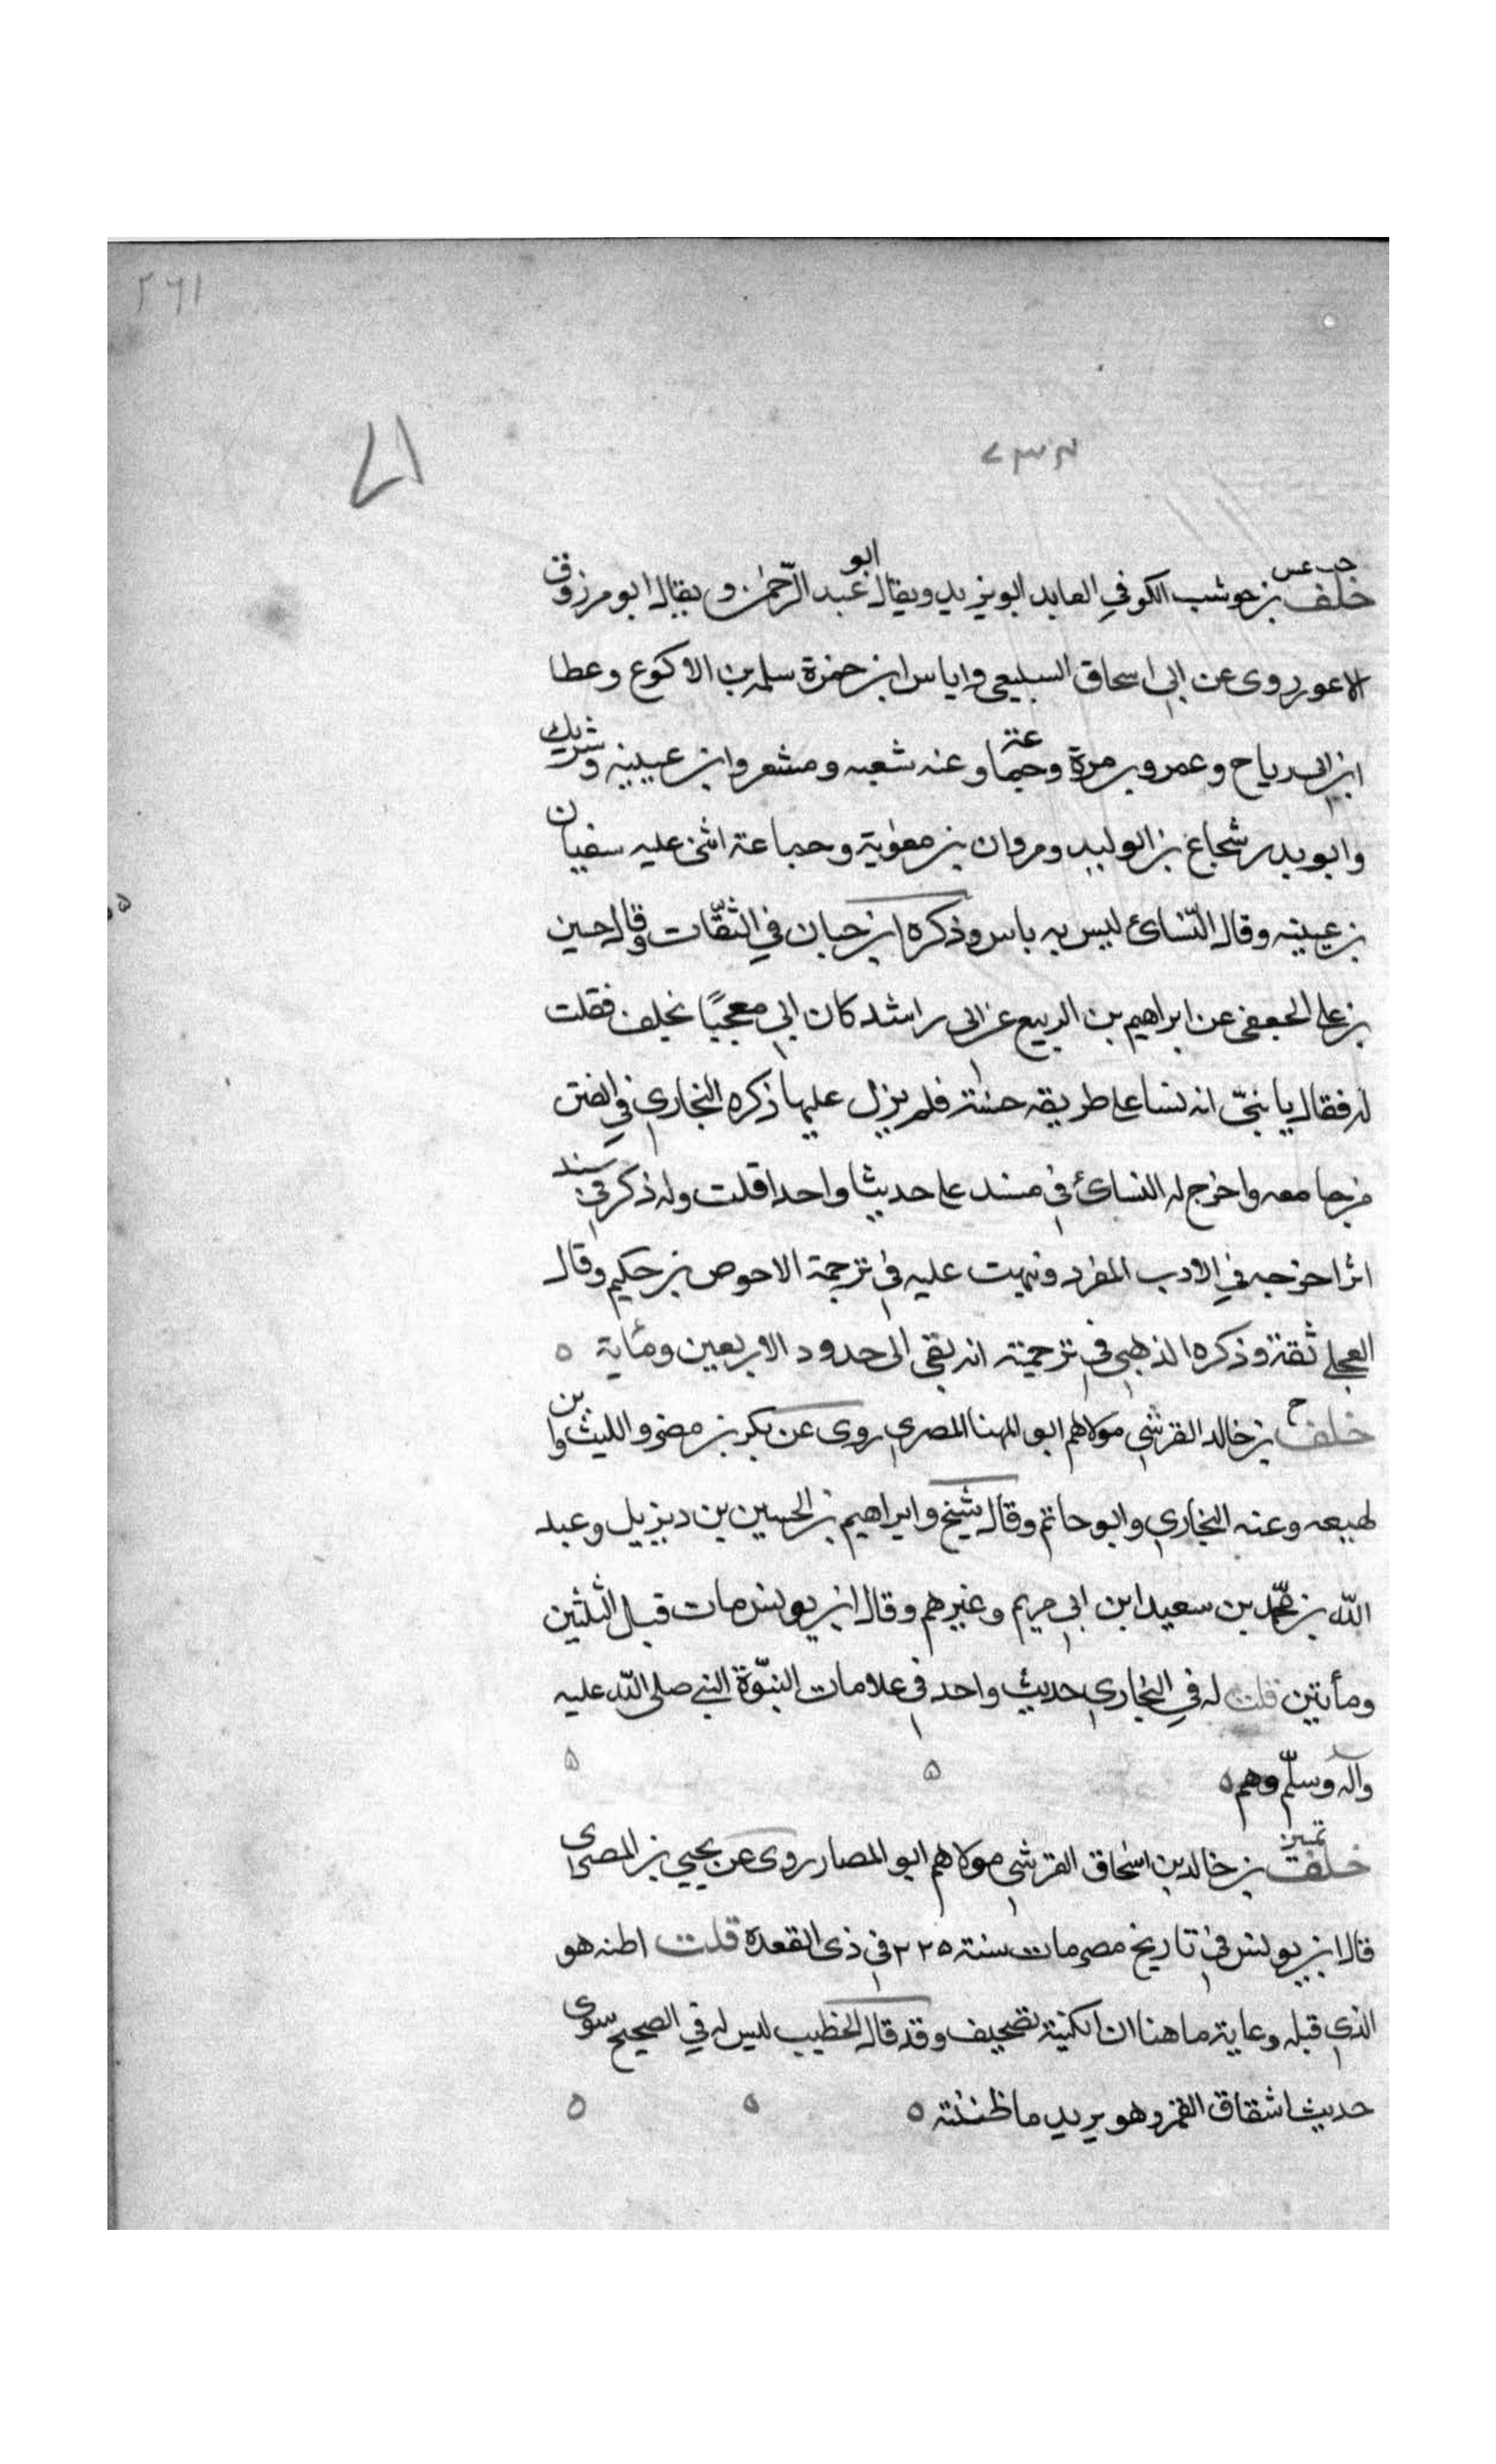 ٢٦١
١٧
٧٣٣
خت عس
خلف بن حوشب الكوفي العابد ابو يزيد ويقال ابو عبد الرّحمن ويقال ابو مرزوق
الاعور روى عن ابي اسحاق السبيعي واياس ابن حمزة سلمه بن الاكوع وعطا
ابن ابي رياح وعمرو بن مرة وجماعة وعنه شعبه ومشعر وابن عيينه وشريك
وابو بدر شجاع بن الوليد ومروان بن معوية وجماعة اثنى عليه سفيان
بن عيينه وقال النّسائ ليس به باس وذكره ابن حبان في الثّقات وقال حسين
بن علي الجعفي عن ابراهيم بن الربيع عن ابي راشد كان ابي معجبًا بخلف فقلت
له فقال يا بنيّ انه نشا على طريقه حسنة فلم يزل عليها ذكره البخاري في الفتن
من جامعه واخرج له النسائ في مسند علي حديثا واحدا قلت وله ذكر في سند
اثر اخرجه في الادب المفرد ونبهت عليه في ترجمة الاحوص بن حكيم وقال
العجلي ثقة وذكره الذهبي في ترجمته انه بقي الى حدود الاربعين ومئاية ه
خ
خلف بن خالد القرشي مولاهم ابو المهنا المصري روى عن بكر بن مضر والليث وابن
لهيعه وعنه البخاري وابو حاتم وقال شيخ وابراهيم بن الحسين بن ديزيل وعبد
الله بن محمّد بن سعيد ابن ابي مريم وغيرهم وقال ابن يونس مات قبل الثلثين
ومأتين قلت له في البخاري حديث واحد في علامات النبّوة النبي صلى الله عليه
وآله وسلّم وهم ه ه ه
تميز
خلف بن خالد بن اسحاق القرشي مولاهم ابو المصار روى عن يحيي بن المصرى
قال ابن يونس في تاريخ مصر مات سنة ٢٢٥ في ذي القعدة قلت اظنه هو
الذي قبله وغاية ما هنا ان الكنية تصحيف وقد قال الخطيب ليس له في الصحيح سوى
حديث اشقاق القمر وهو يريد ما ظننته ه ه ه